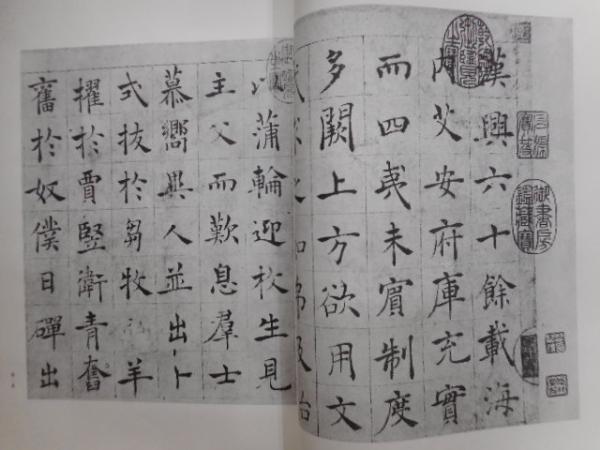 漢興六十餘載海
內艾安府庫充實
而四夷未賓制度
多闕上方欲用文
武求之如弗及始
以蒲輪迎枚生見
主父而歎息羣士
慕嚮異人並出卜
式拔於芻牧弘羊
擢於賈豎衛青奮
舊於奴僕日磾出
御書房鑑藏寶